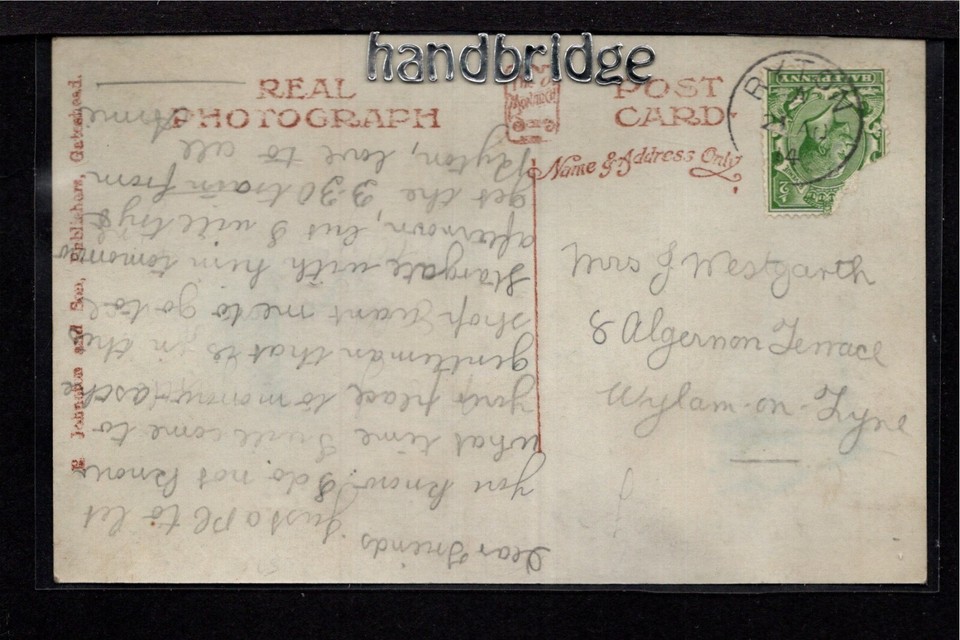 handbridge
REAL PHOTOGRAPH
The Monarch
POST CARD.
Name & Address Only
R. Johnston and Son, Publishers, Gateshead.
RYTON
HALFPENNY
Mrs J Westgarth
8 Algernon Terrace
Wylam-on-Tyne
Dear Friends
Just a PC to let
you know I do not know
what time I will come to
your place to morrow as the
gentleman that is in the
shop want me to go to
Stargate with him tomorrow
afternoon, but I will try &
get the 3-30 train from
Ryton, love to all
Annie